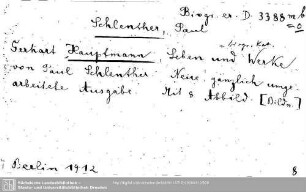 Biogr. er. D. 3388 mb
=0
Schlenther, Paul
biogr. Kat.
Gerhart Hauptmann, Leben und Werke
von Paul Schlenther. Neue, gänzlich umge-
arbeitete Ausgabe. Mit 8 Abbild. [Bildn.]
Berlin 1912
8
Sächsische Landesbibliothek -
Staats- und Universitätsbibliothek Dresden